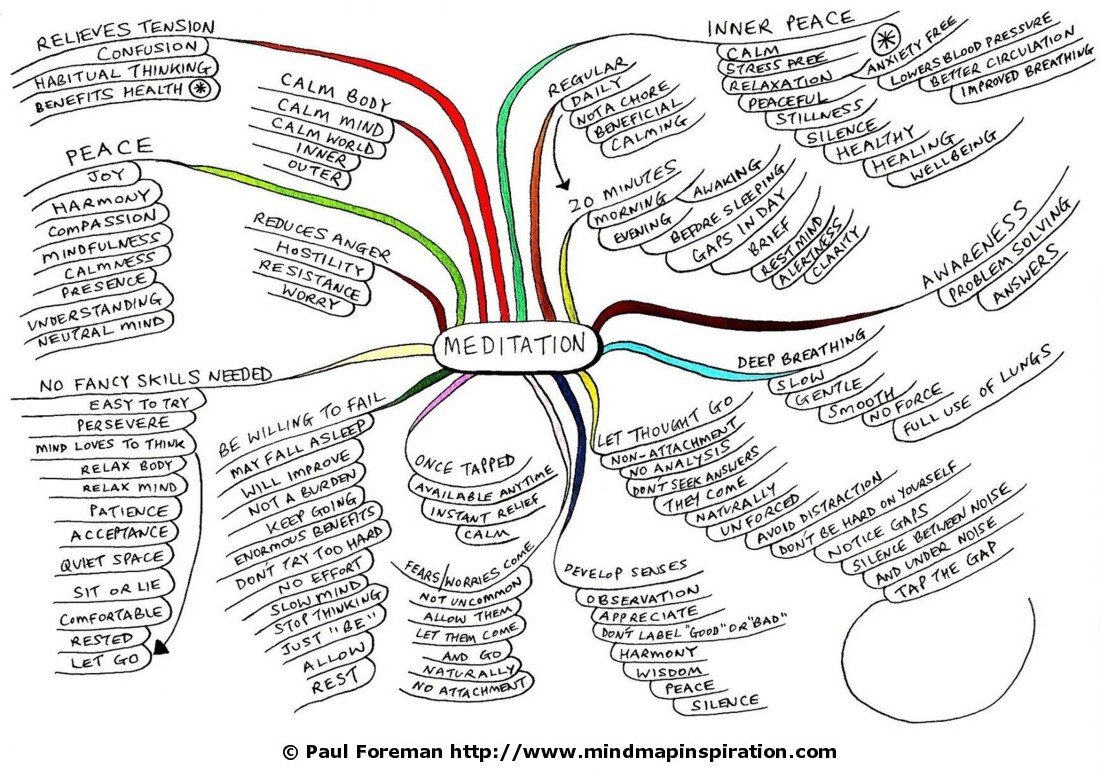 RELIEVES TENSION
CONFUSION
HABITUAL THINKING
BENEFITS HEALTH *
CALM BODY
CALM MIND
CALM WORLD
INNER
OUTER
PEACE
JOY
HARMONY
COMPASSION
MINDFULNESS
CALMNESS
PRESENCE
UNDERSTANDING
NEUTRAL MIND
REDUCES ANGER
HOSTILITY
RESISTANCE
WORRY
REGULAR
DAILY
NOT A CHORE
BENEFICIAL
CALMING
INNER PEACE
CALM
STRESS FREE
RELAXATION
PEACEFUL
STILLNESS
SILENCE
HEALTHY
HEALING
WELLBEING
*
ANXIETY FREE
LOWERS BLOOD PRESSURE
BETTER CIRCULATION
IMPROVED BREATHING
20 MINUTES
MORNING
EVENING
AWAKING
BEFORE SLEEPING
GAPS IN DAY
BRIEF
REST MIND
ALERTNESS
CLARITY
AWARENESS
PROBLEM SOLVING
ANSWERS
MEDITATION
DEEP BREATHING
SLOW
GENTLE
SMOOTH
NO FORCE
FULL USE OF LUNGS
NO FANCY SKILLS NEEDED
EASY TO TRY
PERSEVERE
MIND LOVES TO THINK
RELAX BODY
RELAX MIND
PATIENCE
ACCEPTANCE
QUIET SPACE
SIT OR LIE
COMFORTABLE
RESTED
LET GO
BE WILLING TO FAIL
MAY FALL ASLEEP
WILL IMPROVE
NOT A BURDEN
KEEP GOING
ENORMOUS BENEFITS
DON'T TRY TOO HARD
NO EFFORT
SLOW MIND
STOP THINKING
JUST "BE"
ALLOW
REST
ONCE TAPPED
AVAILABLE ANYTIME
INSTANT RELIEF
CALM
FEARS/WORRIES COME
NOT UNCOMMON
ALLOW THEM
LET THEM COME
AND GO
NATURALLY
NO ATTACHMENT
DEVELOP SENSES
OBSERVATION
APPRECIATE
DON'T LABEL "GOOD" OR "BAD"
HARMONY
WISDOM
PEACE
SILENCE
LET THOUGHT GO
NON-ATTACHMENT
NO ANALYSIS
DON'T SEEK ANSWERS
THEY COME
NATURALLY
UNFORCED
AVOID DISTRACTION
DON'T BE HARD ON YOURSELF
NOTICE GAPS
SILENCE BETWEEN NOISE
AND UNDER NOISE
TAP THE GAP
© Paul Foreman http://www.mindmapinspiration.com